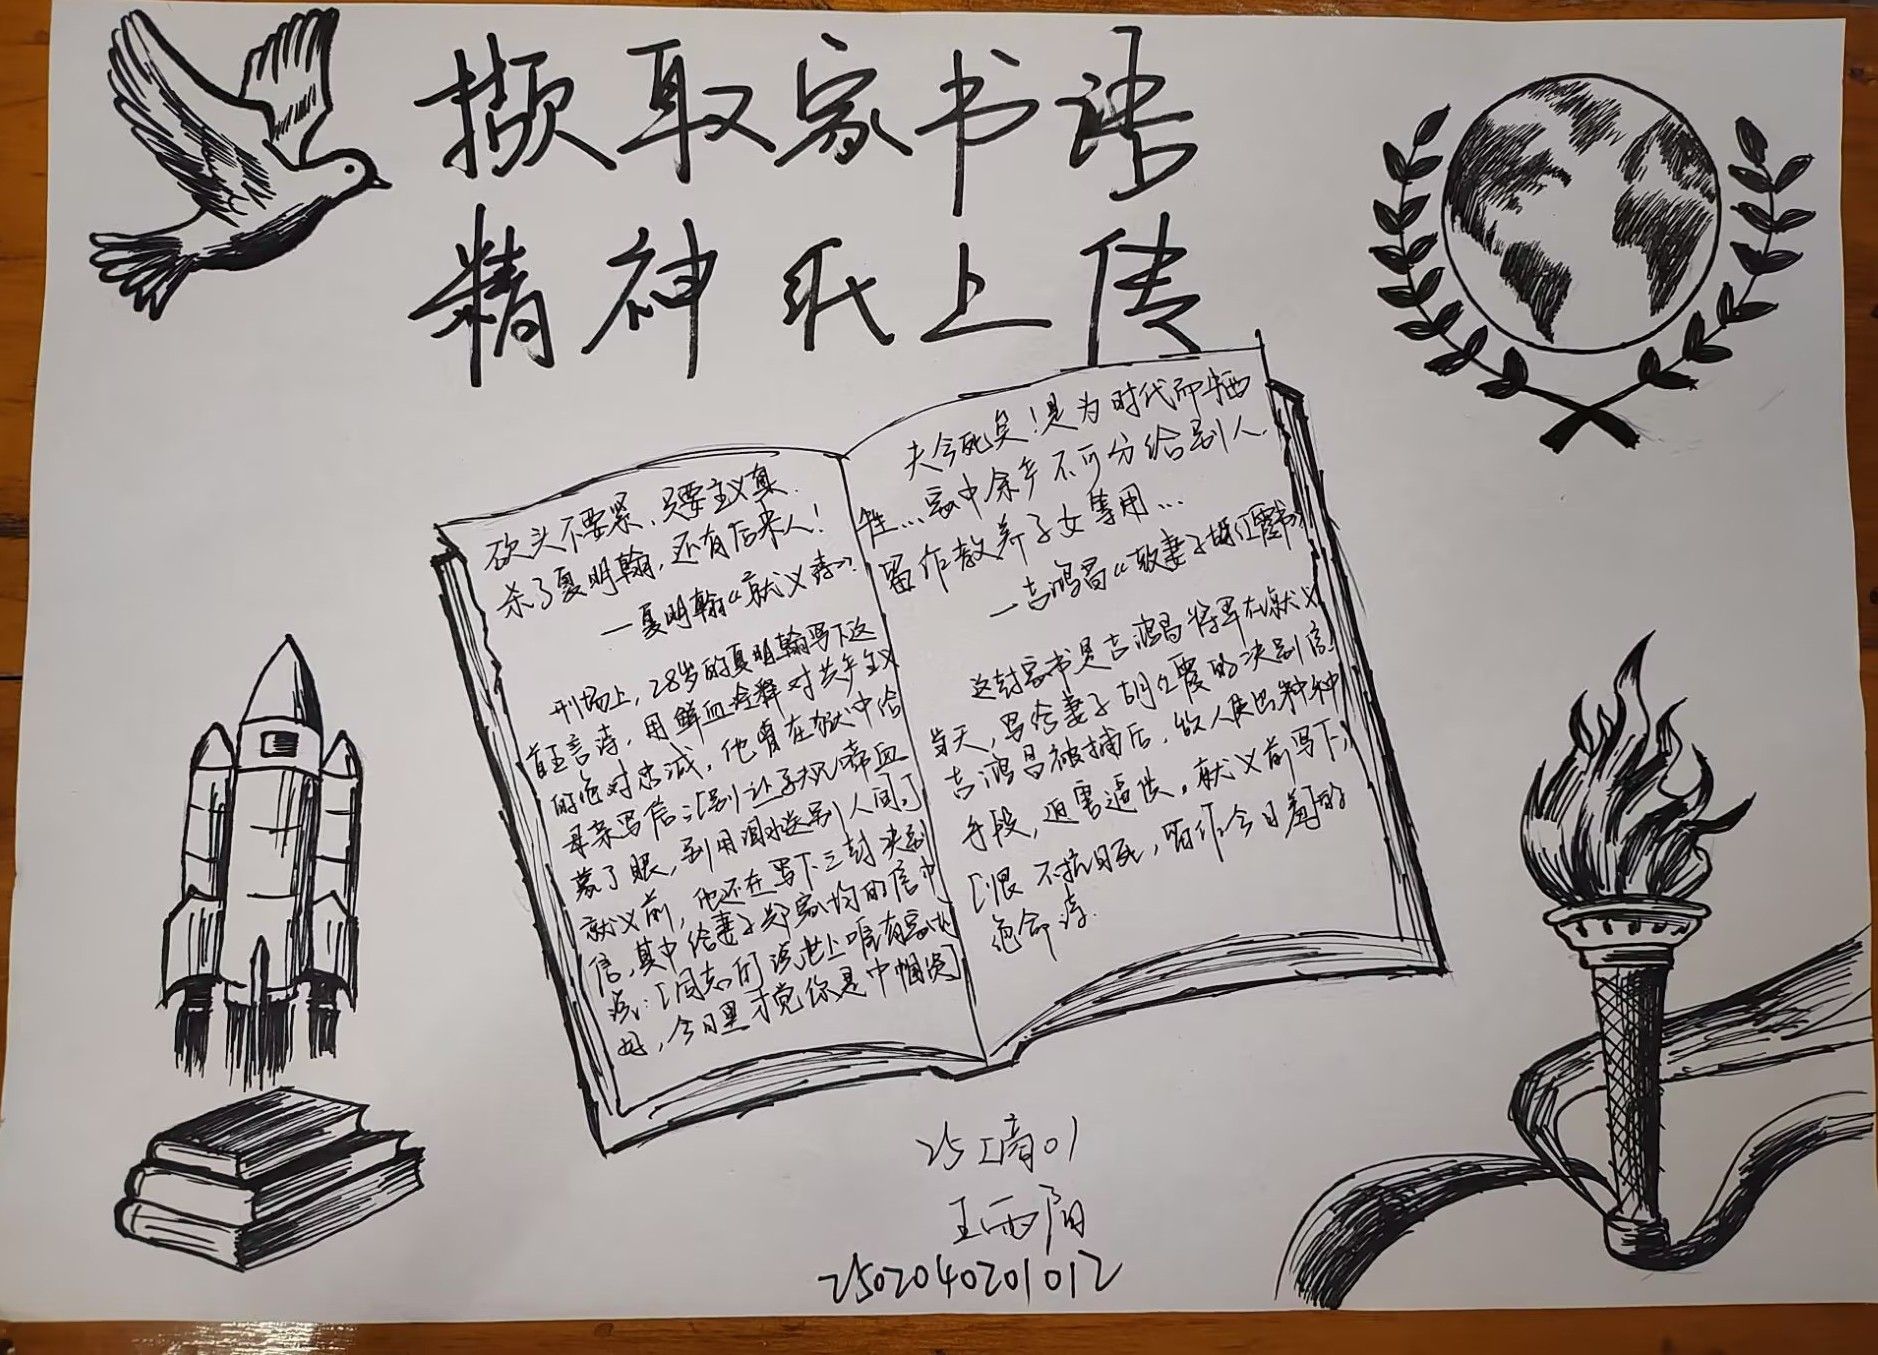 撷取家书语
精神纸上传
砍头不要紧，只要主义真.
杀了夏明翰，还有后来人！
—夏明翰“就义诗”.
刑场上，28岁的夏明翰写下这
首正言诗，用鲜血诠释对共产主义
的绝对忠诚，他曾在狱中给
母亲写信：[别让子规啼血
蒙了眼，别用泪水送别人间。]
就义前，他还在写下三封决别
信，其中给妻子郑家均的信中
说：[同志们说世上唯有家
好，今日里才觉你是中帼贤]
夫今死矣！是为时代而牺
牲…家中余产不可分给别人.
留作教养子女等用…
—吉鸿昌“致妻子胡红霞书”
这封家书是吉鸿昌将军在就义
当天，写给妻子胡红霞的决别信
吉鸿昌被捕后，敌人使出种种
手段，迫害逼供。就义前写下
[恨不抗日死，留作今日羞]的
绝命诗.
25 01
王雨阳
2502040201012